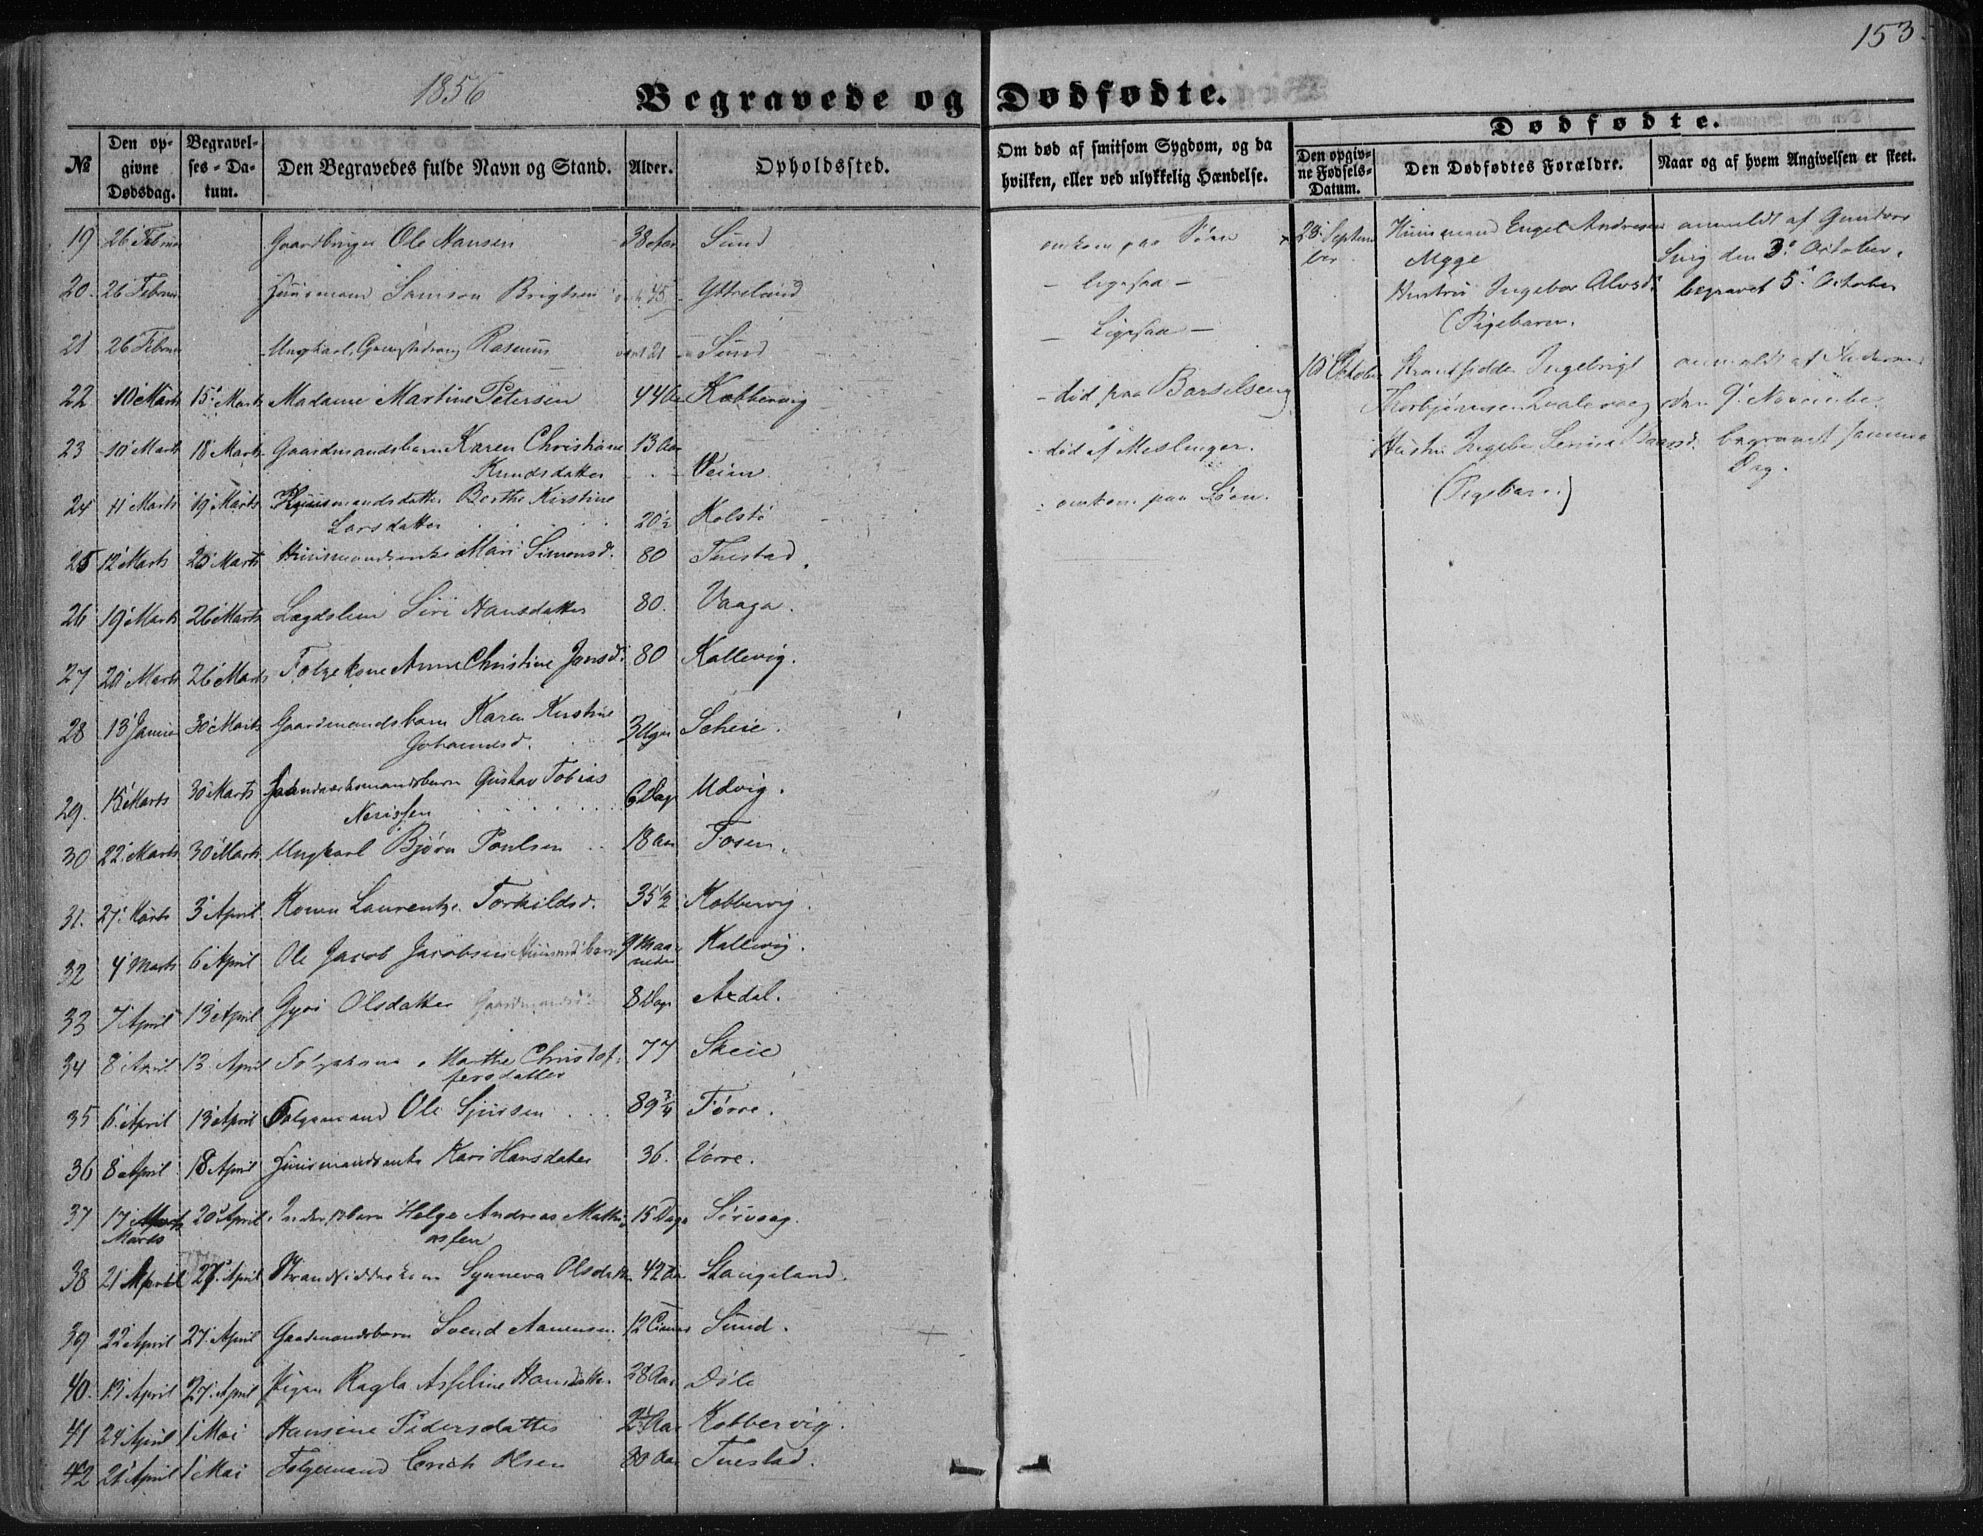 153
1856
Begravede og Dødfødte.
№
Den opgivne Dødsdag.
Begravelses-Datum.
Den Begravedes fulde Navn og Stand.
Alder.
Opholdssted.
Om død af smitsom Sygdom, og da hvilken, eller ved ulykkelig Hændelse.
Dødfødte.
Den opgivne Fødsels-Datum.
Den Dødfødtes Forældre.
Naar og af hvem Angivelsen er skeet.
19 26 Februar Ole Hansen 38 Aar Sund omkom paa Søen
20. 26 Februar Huusmand Samson Brigtsen 45 Ytreland - ligesaa -
21 26 Februar Ungkarl Rasmus 21 Sund - Ligesaa -
22 10 Marts 15 Marts Madame Martine Petersen 44 Aar Kobbervig - död paa Barselseng
23 10 Marts 18 Marts Gaardmandsbarn Karen Christiane
Knudsdatter 13 Aar Veim - död af Meslinger.
24 11 Marts 19 Marts Huusmandsdatter Berthe Kirstine
Larsdatter 20½ Kolstö - omkom paa Söen.
25 12 Marts 25 Marts Huusmandsenke Mari Simonsd. 80 Tuestad
26 19 Marts 26 Marts Lægdslem Siri Hansdatter 80. Vaaga.
27 20 Marts 26 Marts Folgekone Anne Christine Jonsd. 80 Kallevig.
28 13 Januar 30 Marts Gaardmandsbarn Karen Kirstine
Johannesd. 3 Uger Scheie.
29. 15 Marts 30 Marts Gustav Tobias
6 Dage Udvig.
30 22 Marts 30 Marts Ungkarl Bjørn Poulsen 18 Aar Fosen.
31. 27. Marts 3 April Konen Laurentze Torkildsd. 35½ Kobbervig.
32 4 Marts 6 April Ole Jacob Jacobsen 9 Maaneder Kallevig.
33 7 April 13 April Gyri Olsdatter 8 Dage Axdal.
34 8 April 13 April Marthe Christoffersdatter 77 Skeie
35 6 April 13 April Folgemand Ole Sjursen 89¾ Förre.
36 8 April 18 April Huusmandsenke Kari Hansdatter 36. Vorre.
37 17 Marts 20 April Inderstbarn Helge Andreas Mathiassen 15 Dage Sörvaag.
38 21 April 27 April Strandsidderkone Synneva Olsdatter 42 Aar Stangeland.
39 22 April 27. April Gaardmandsbarn Svend Aanensen 12 Sund.
40. 13 April 27. April Pigen Ragla Asseline Hansdatter 28 Aar Döle
41 24 April 1 Mai Hansine Pedersdatter Aar Kobbervig.
42 21 April 1 Mai Folgemand Erich Olsen 80 Aar Tuestad.
28 September Huusmand Engel Andresen
Mygge
Hustru Ingebor Alvsd.
(Pigebarn.
anmeldt af Gundvor
den 3. October,
begravet 5 October
10 October Strandsidder Ingebrigt
Thorbjörnsen Kvalevaag
Hustru
(Pigebarn)
anmeldt af
den 9. November
begravet samme
Dag.